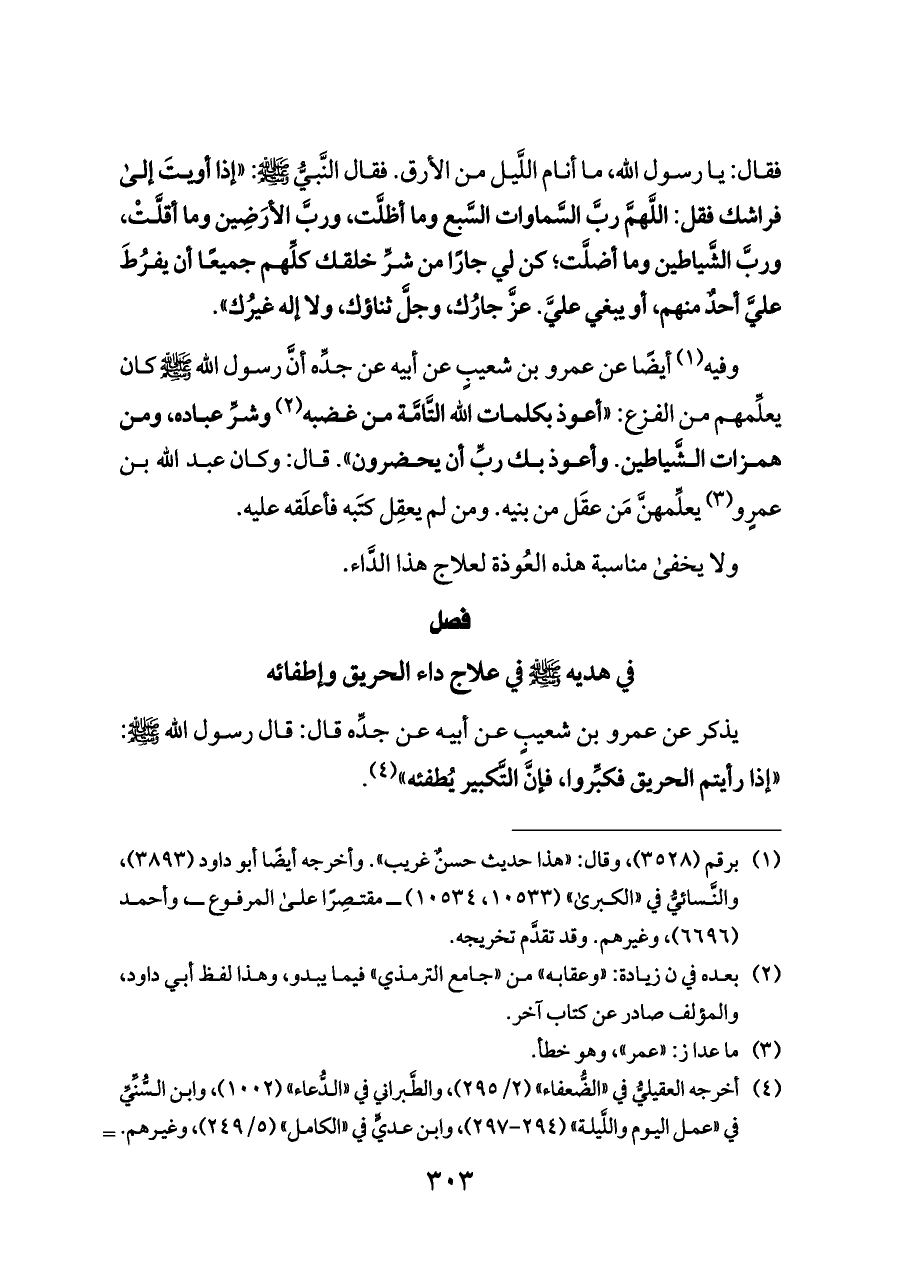 فقال: يا رسول الله، ما أنام اللَّيل من الأرق. فقال النَّبيُّ ﷺ: «إذا أويتَ إلىٰ
فراشك فقل: اللَّهمَّ ربَّ السَّماوات السَّبع وما أظلَّت، وربَّ الأرَضِين وما أقلَّتْ،
وربَّ الشَّياطين وما أضلَّت؛ كن لي جارًا من شرِّ خلقك كلِّهم جميعًا أن يفرُطَ
عليَّ أحدٌ منهم، أو يبغي عليَّ. عزَّ جارُك، وجلَّ ثناؤك، ولا إله غيرُك».
وفيه(١) أيضًا عن عمرو بن شعيبٍ عن أبيه عن جدِّه أنَّ رسول الله ﷺ كان
يعلِّمهم من الفزع: «أعوذ بكلمات الله التَّامَّة من غضبه(٢) وشرِّ عباده، ومن
همزات الشَّياطين. وأعوذ بك ربِّ أن يحضرون». قال: وكان عبد الله بن
عمرٍو(٣) يعلِّمهنَّ مَن عقَل من بنيه. ومن لم يعقِل كتَبه فأعلَقه عليه.
ولا يخفىٰ مناسبة هذه العُوذة لعلاج هذا الدَّاء.
فصل
في هديه ﷺ في علاج داء الحريق وإطفائه
يذكر عن عمرو بن شعيبٍ عن أبيه عن جدِّه قال: قال رسول الله ﷺ:
«إذا رأيتم الحريق فكبِّروا، فإنَّ التَّكبير يُطفئه»(٤).
(١) برقم (٣٥٢٨)، وقال: «هذا حديث حسنٌ غريب». وأخرجه أيضًا أبو داود (٣٨٩٣)،
والنَّسائيُّ في «الكبرىٰ» (١٠٥٣٣، ١٠٥٣٤) ــ مقتصِرًا علىٰ المرفوع ــ، وأحمد
(٦٦٩٦)، وغيرهم. وقد تقدَّم تخريجه.
(٢) بعده في ن زيادة: «وعقابه» من «جامع الترمذي» فيما يبدو، وهذا لفظ أبي داود،
والمؤلف صادر عن كتاب آخر.
(٣) ما عدا ز: «عمر»، وهو خطأ.
(٤) أخرجه العقيليُّ في «الضُّعفاء» (٢/ ٢٩٥)، والطَّبراني في «الدُّعاء» (١٠٠٢)، وابن السُّنِّيِّ
في «عمل اليوم واللَّيلة» (٢٩٤-٢٩٧)، وابن عديٍّ في «الكامل» (٥/ ٢٤٩)، وغيرهم. =
٣٠٣